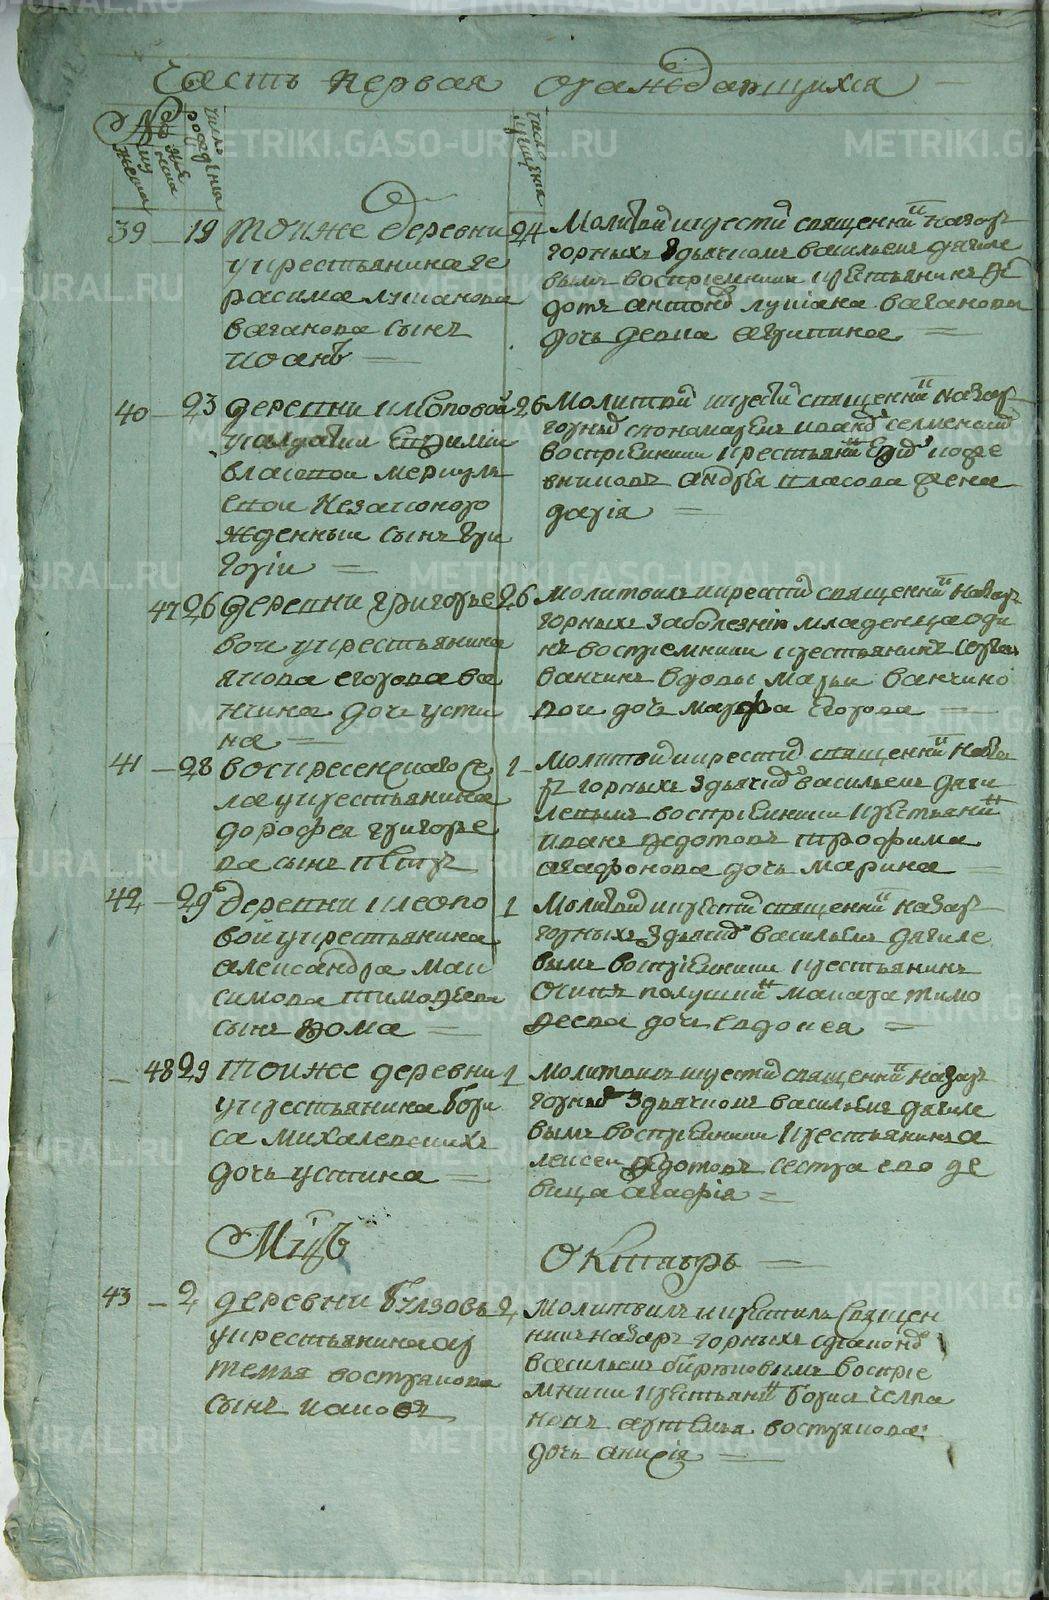 часть первая оуанждающихся
№
муж
женск
число рождения
число крещения
39 19 тоиже деревни
укрестьянина ге
расима лукианова
ваганова сынъ
иоанъ
24 Молитвой икрестил священник назар
горных здьячком васильем дягиле
вым восприемники крестьянин фе
дотъ антонов лукиана ваганова
дочь девка агрипина
40 23 деревни клюповой
усолдатки ефимии
власовой меркуль
евой незаконоро
жденныи сынъ гри
гории
26 Молитвой икрестил священник назар
горных спономарем иваном семеновым
восприемники крестьянин
андрея власова жена
дария
47 26 деревни григорье
вои укрестьянина
якова егорова ва
нчина дочь усти
на
26 молитвил икрестил священник назар
горных заболезнию младенца оди
нъ восприемники крестьянинъ сергеи
ванчинъ вдовы марьи ванчино
вои дочь марфа егорова
41 28 воскресенскаго се
ла укрестьянина
дорофея григорье
ва сынъ петръ
1 Молитвой икрестил священник наза
ръ горных здьячком васильем дяги
левым восприемники крестьянин
иванъ федотовъ трофима
агафонова дочь марина
42 29 деревни клеопо
вой укрестьянина
александра мак
симова тимофеева
сынъ фома
1 Молитвой икрестил священник назар
горных здьячком васильем дягиле
вым восприемники крестьянинъ
осипъ полушин макара тимо
феева дочь евдокея
48 29 тоиже деревни
укрестьянина бори
са михалевскихъ
дочь устина
1 молитвил икрестил священник назаръ
горных здьячкомъ васильем дягиле
вымъ восприемники крестьянинъ а
лексеи федотовъ сестра ево де
вица агафия
Мцъ
Октябрь
43 2 деревни бызовъ
укрестьянина ар
темья вострякова
сынъ иаковъ
2 молитвилъ икрестилъ священ
никъ назаръ горныхъ
васильем бирюковымъ восприе
мники крестьянин борисъ челпа
новъ артемья вострякова
дочь анисия